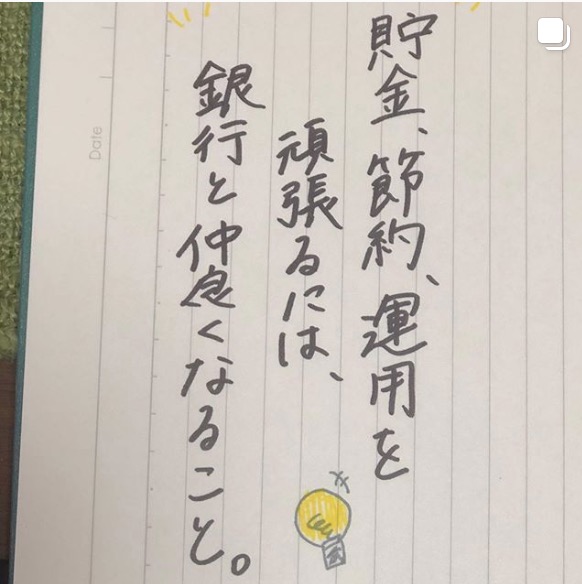 貯金、節約、運用を
頑張るには、
銀行と仲良くなること。
Date